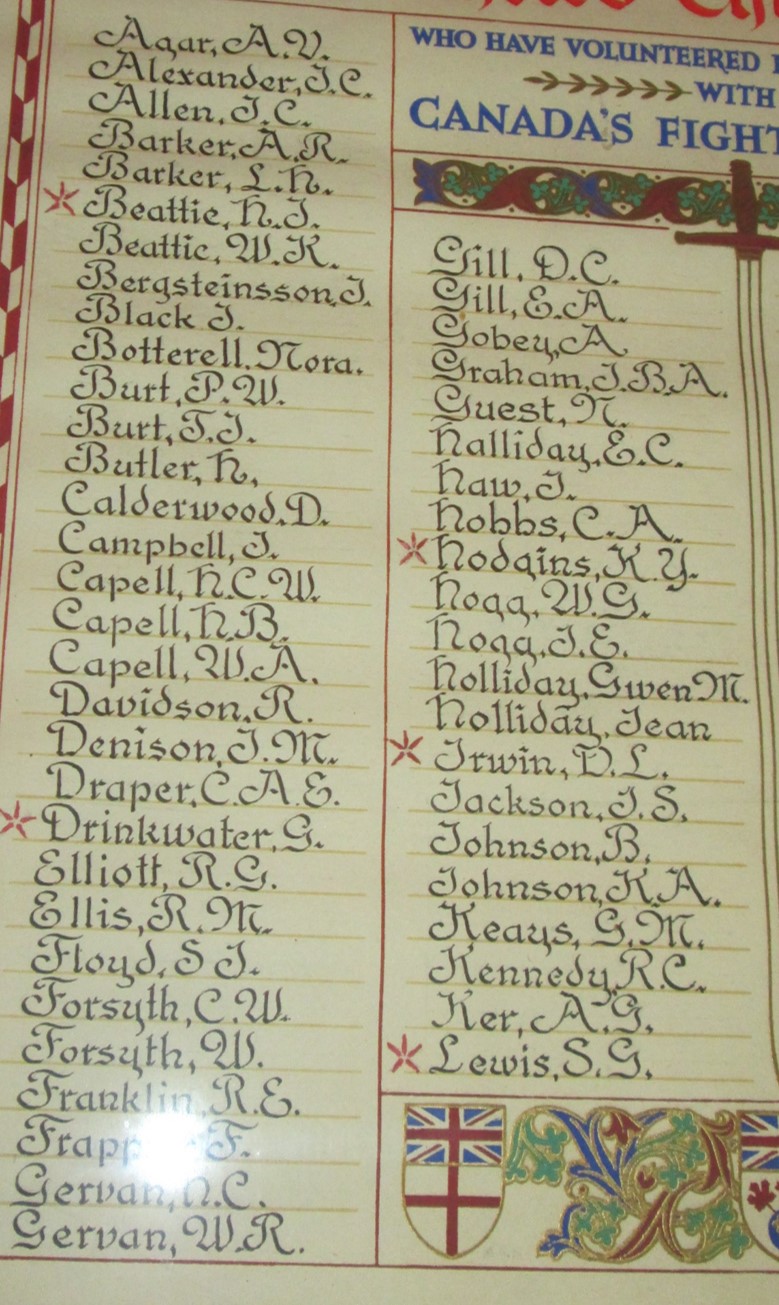 Agar, A.V.
Alexander, J.C.
Allen, J.C.
Barker, A.R.
Barker, L.H.
Beattie, H.J.
Beattie, W.K.
Bergsteinsson, J.
Black J.
Botterell. Nora.
Burt, P.W.
Burt, T.J.
Butler, H,
Calderwood, D.
Campbell, J.
Capell, H.C.W.
Capell, H.B.
Capell, W.A.
Davidson, R.
Denison, J.M.
Draper, C.A.E.
Drinkwater, G.
Elliott, R.G.
Ellis, R.M.
Floyd, S J.
Forsyth, C.W.
Forsyth, W.
Franklin, R.E.
F.
Gervan, C.
Gervan, W.R.
WHO HAVE VOLUNTEERED
WITH
CANADA'S FIGHT
Gill, D.C.
Gill, E.A.
Gobey, A.
Graham, J.B.A.
Guest, N.
Halliday, E.C.
Haw, J.
Hobbs, C.A.
Hodgins, K.Y.
Hogg, W.G.
Hogg, J.E.
Holliday, Gwen M.
Holliday, Jean
Irwin, D.L.
Jackson, J.S.
Johnson, B.
Johnson, K.A.
Keays, G.M.
Kennedy, R.C.
Ker, A.G.
Lewis, S.G.